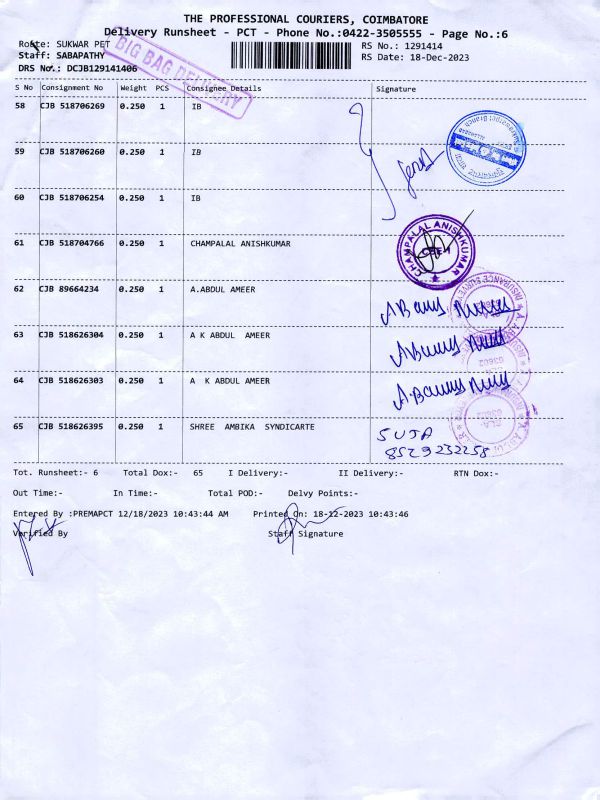 THE PROFESSIONAL COURIERS, COIMBATORE
Delivery Runsheet - PCT - Phone No.:0422-3505555 - Page No.:6
Route: SUKWAR PET
RS No.: 1291414
Staff: SABAPATHY
RS Date: 18-Dec-2023
DRS No.: DCJB129141406
BIG BAG DELIVERY
S No Consignment No Weight PCS Consignee Details Signature
58 CJB 518706269 0.250 1 IB
59 CJB 518706260 0.250 1 IB
60 CJB 518706254 0.250 1 IB
61 CJB 518704766 0.250 1 CHAMPALAL ANISHKUMAR
CHAMPALAL ANISHKUMAR
62 CJB 89664234 0.250 1 A.ABDUL AMEER
63 CJB 518626304 0.250 1 A K ABDUL AMEER
64 CJB 518626303 0.250 1 A K ABDUL AMEER
65 CJB 518626395 0.250 1 SHREE AMBIKA SYNDICARTE
SUJA
8529232258
Tot. Runsheet:- 6 Total Dox:- 65 I Delivery:- II Delivery:- RTN Dox:-
Out Time:- In Time:- Total POD:- Delvy Points:-
Entered By :PREMAPCT 12/18/2023 10:43:44 AM Printed On: 18-12-2023 10:43:46
Verified By Staff Signature